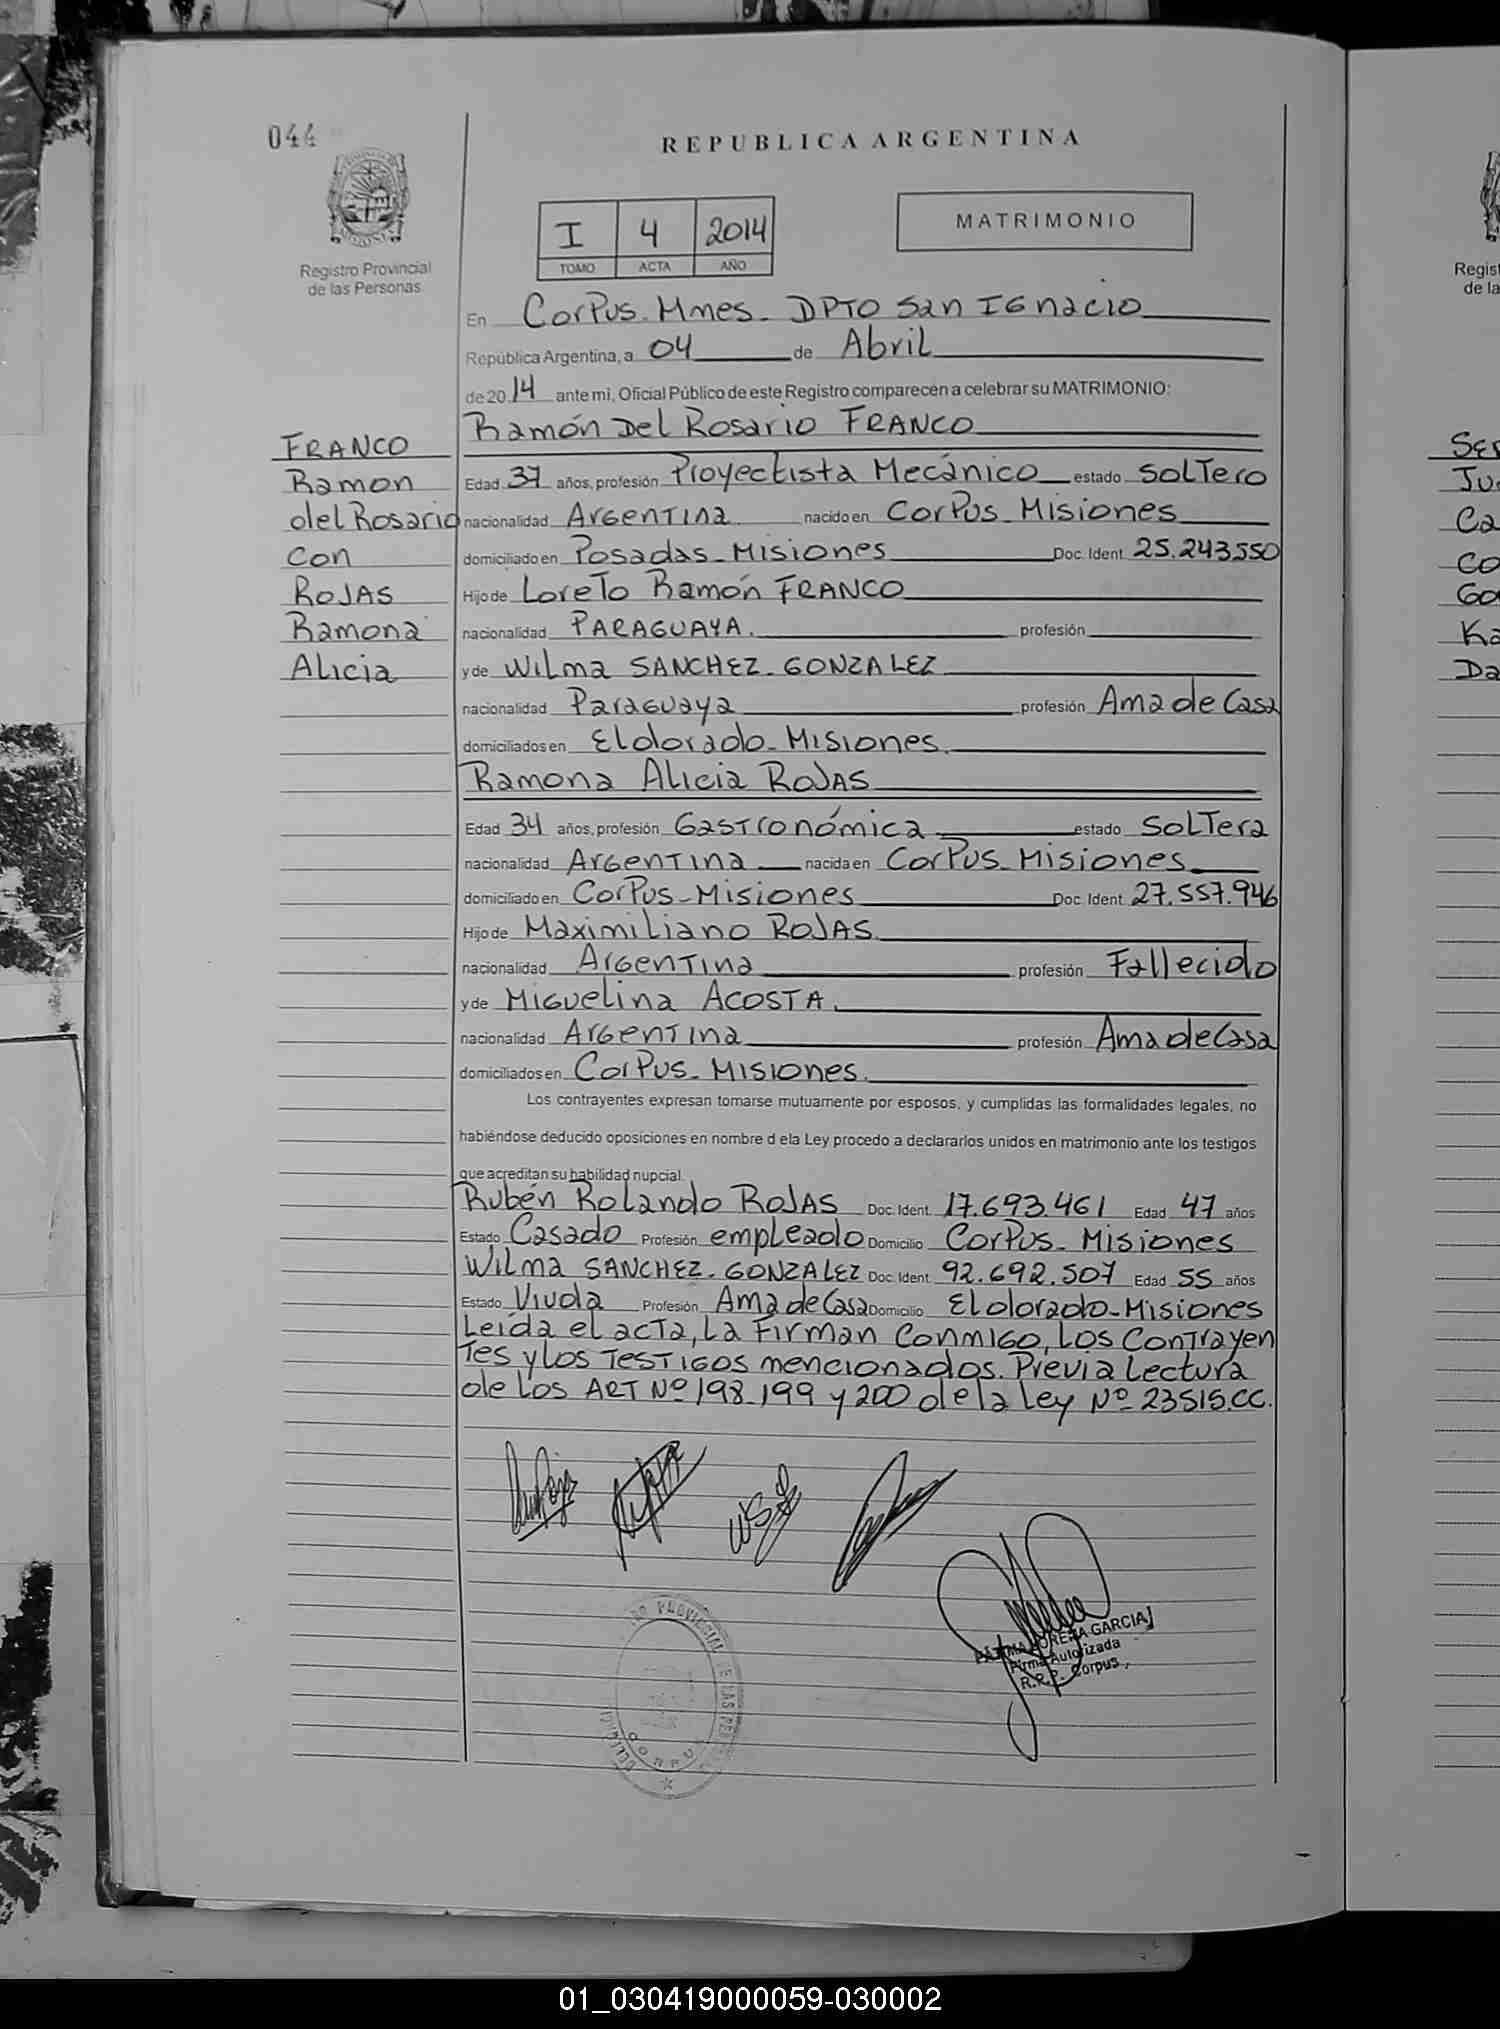 044
REPUBLICA ARGENTINA
I 4 2014
TOMO ACTA AÑO
MATRIMONIO
Registro Provincial
de las Personas
En Corpus-Mnes- DPTO San Ignacio
República Argentina, a 04 de Abril
de 20 14 ante mi, Oficial Público de este Registro comparecen a celebrar su MATRIMONIO:
Ramón Del Rosario FRANCO
FRANCO
Ramon
del Rosario
con
ROJAS
Ramona
Alicia
Edad 37 años, profesión Proyectista Mecánico estado SolTero
nacionalidad Argentina nacido en Corpus-Misiones
domiciliado en Posadas-Misiones Doc. Ident. 25.243.550
Hijo de Loreto Ramón FRANCO
nacionalidad PARAGUAYA. profesión
y de Wilma SANCHEZ-GONZALEZ
nacionalidad Paraguaya profesión Ama de Casa
domiciliados en Eldorado-Misiones.
Ramona Alicia ROJAS
Edad 34 años, profesión Gastronómica estado SolTera
nacionalidad Argentina nacida en Corpus-Misiones
domiciliado en Corpus-Misiones Doc. Ident. 27.557.946
Hijo de Maximiliano ROJAS
nacionalidad Argentina profesión Fallecido
y de Miguelina ACOSTA.
nacionalidad Argentina profesión Ama de Casa
domiciliados en Corpus-Misiones.
Los contrayentes expresan tomarse mutuamente por esposos, y cumplidas las formalidades legales, no
habiéndose deducido oposiciones en nombre d ela Ley procedo a declararlos unidos en matrimonio ante los testigos
que acreditan su habilidad nupcial.
Rubén Rolando ROJAS Doc. Ident. 17.693.461 Edad 47 años
Estado Casado Profesión empleado Domicilio Corpus-Misiones
Wilma SANCHEZ-GONZALEZ Doc. Ident. 92.692.507 Edad 55 años
Estado Viuda Profesión Ama de Casa Domicilio Eldorado-Misiones
Leída el acta, La Firman conmigo, los contrayen
tes y los testigos mencionados. Previa lectura
de los ART Nº 198-199 y 200 de la Ley Nº 23515.CC.
LORENA GARCIA
Firma Autorizada
R.P.P. Corpus
PROVINCIAL DE LAS PER
CORPUS
Regist
de la
SER
Ju
Ca
Co
Go
Ka
Da
01_030419000059-030002